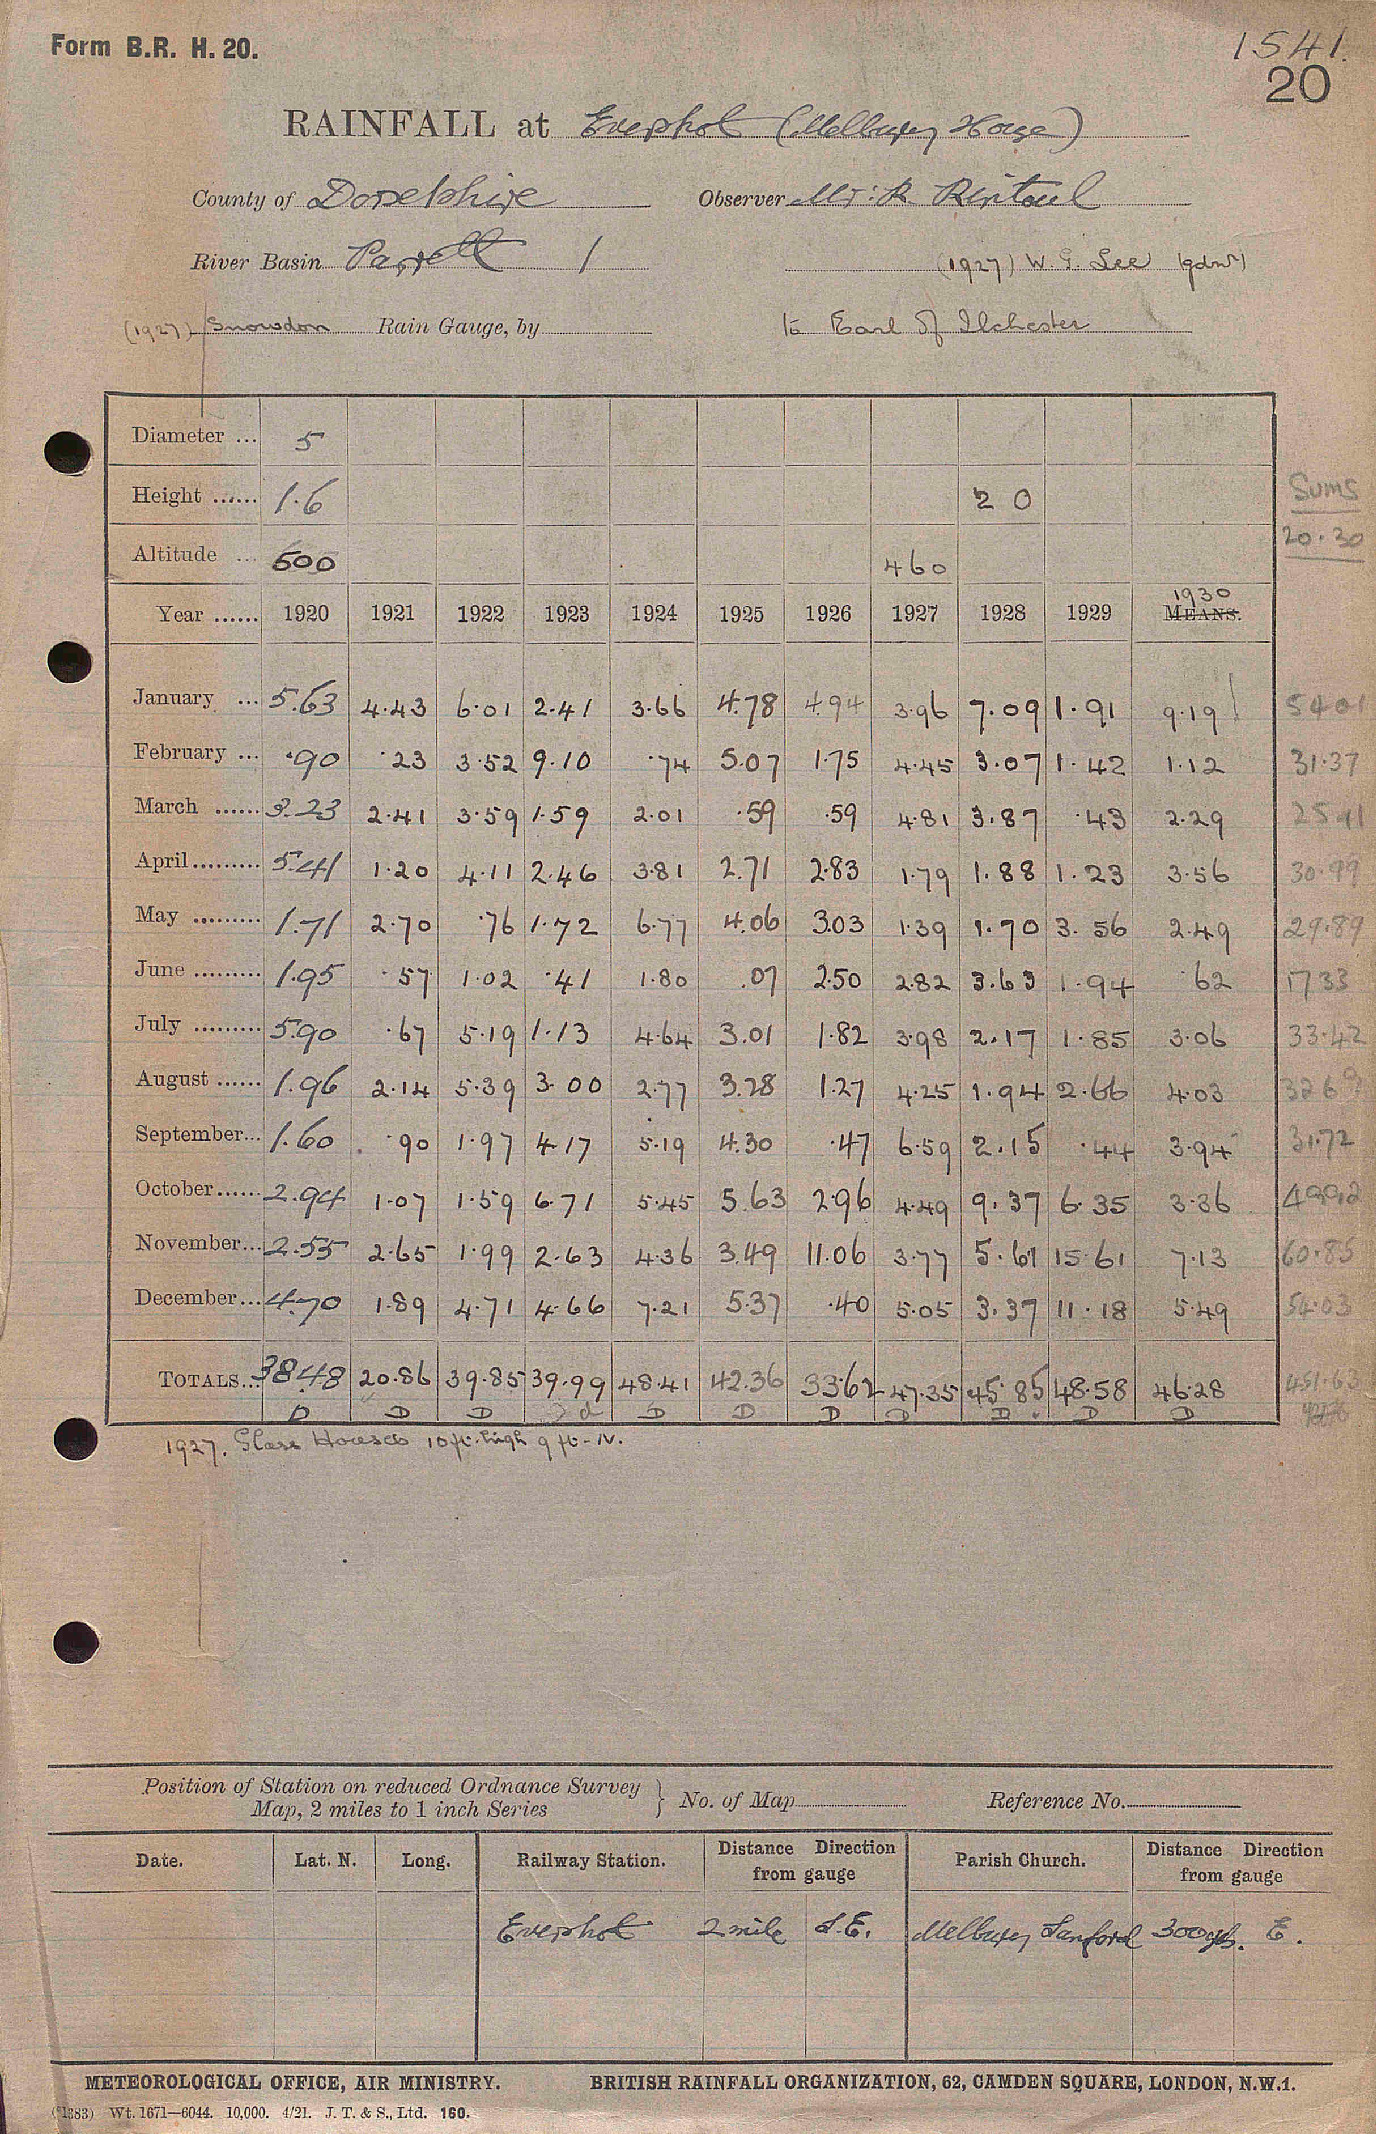 Form B.R. H. 20.
1541.
20
RAINFALL at Evershot (Melbury House)
County of Dorsetshire Observer Mr. R. Rintoul
River Basin Parrett 1 (1927) W. G. Lee (gdnr)
(1927) Snowdon Rain Gauge, by to Earl of Ilchester
Diameter ... 5
Height ...... 1.6 2 0 Sums
Altitude ... 500 460 20.30
Year ...... 1920 1921 1922 1923 1924 1925 1926 1927 1928 1929 1930 MEANS.
January ... 5.63 4.43 6.01 2.41 3.66 4.78 4.94 3.96 7.09 1.91 9.19 ! 54.01
February ... .90 .23 3.52 9.10 .74 5.07 1.75 4.45 3.07 1.42 1.12 31.37
March ...... 3.23 2.41 3.59 1.59 2.01 .59 .59 4.81 3.87 .43 2.29 25.41
April ......... 5.41 1.20 4.11 2.46 3.81 2.71 2.83 1.79 1.88 1.23 3.56 30.99
May ......... 1.71 2.70 .76 1.72 6.77 4.06 3.03 1.39 1.70 3.56 2.49 29.89
June ......... 1.95 .57 1.02 .41 1.80 .07 2.50 2.82 3.63 1.94 .62 17.33
July ......... 5.90 .67 5.19 1.13 4.64 3.01 1.82 3.98 2.17 1.85 3.06 33.42
August ...... 1.96 2.14 5.39 3.00 2.77 3.28 1.27 4.25 1.94 2.66 4.03 32.69
September... 1.60 .90 1.97 4.17 5.19 4.30 .47 6.59 2.15 .44 3.94 31.72
October ...... 2.94 1.07 1.59 6.71 5.45 5.63 2.96 4.49 9.37 6.35 3.36 49.92
November... 2.55 2.65 1.99 2.63 4.36 3.49 11.06 3.77 5.61 15.61 7.13 60.85
December... 4.70 1.89 4.71 4.66 7.21 5.37 .40 5.05 3.37 11.18 5.49 54.03
TOTALS... 38.48 20.86 39.85 39.99 48.41 42.36 33.62 47.35 45.85 48.58 46.28 451.63
D D D d D D D D D D D
1927. Glass Houses 10 ft. high 9 ft - N.
Position of Station on reduced Ordnance Survey
Map, 2 miles to 1 inch Series } No. of Map Reference No.
Date. Lat. N. Long. Railway Station. Distance Direction from gauge Parish Church. Distance Direction from gauge
Evershot 2 mile S.E. Melbury Sanford 300 yds. E.
METEOROLOGICAL OFFICE, AIR MINISTRY. BRITISH RAINFALL ORGANIZATION, 62, CAMDEN SQUARE, LONDON, N.W.1.
Wt. 1671—6044. 10,000. 4/21. J. T. & S., Ltd. 160.